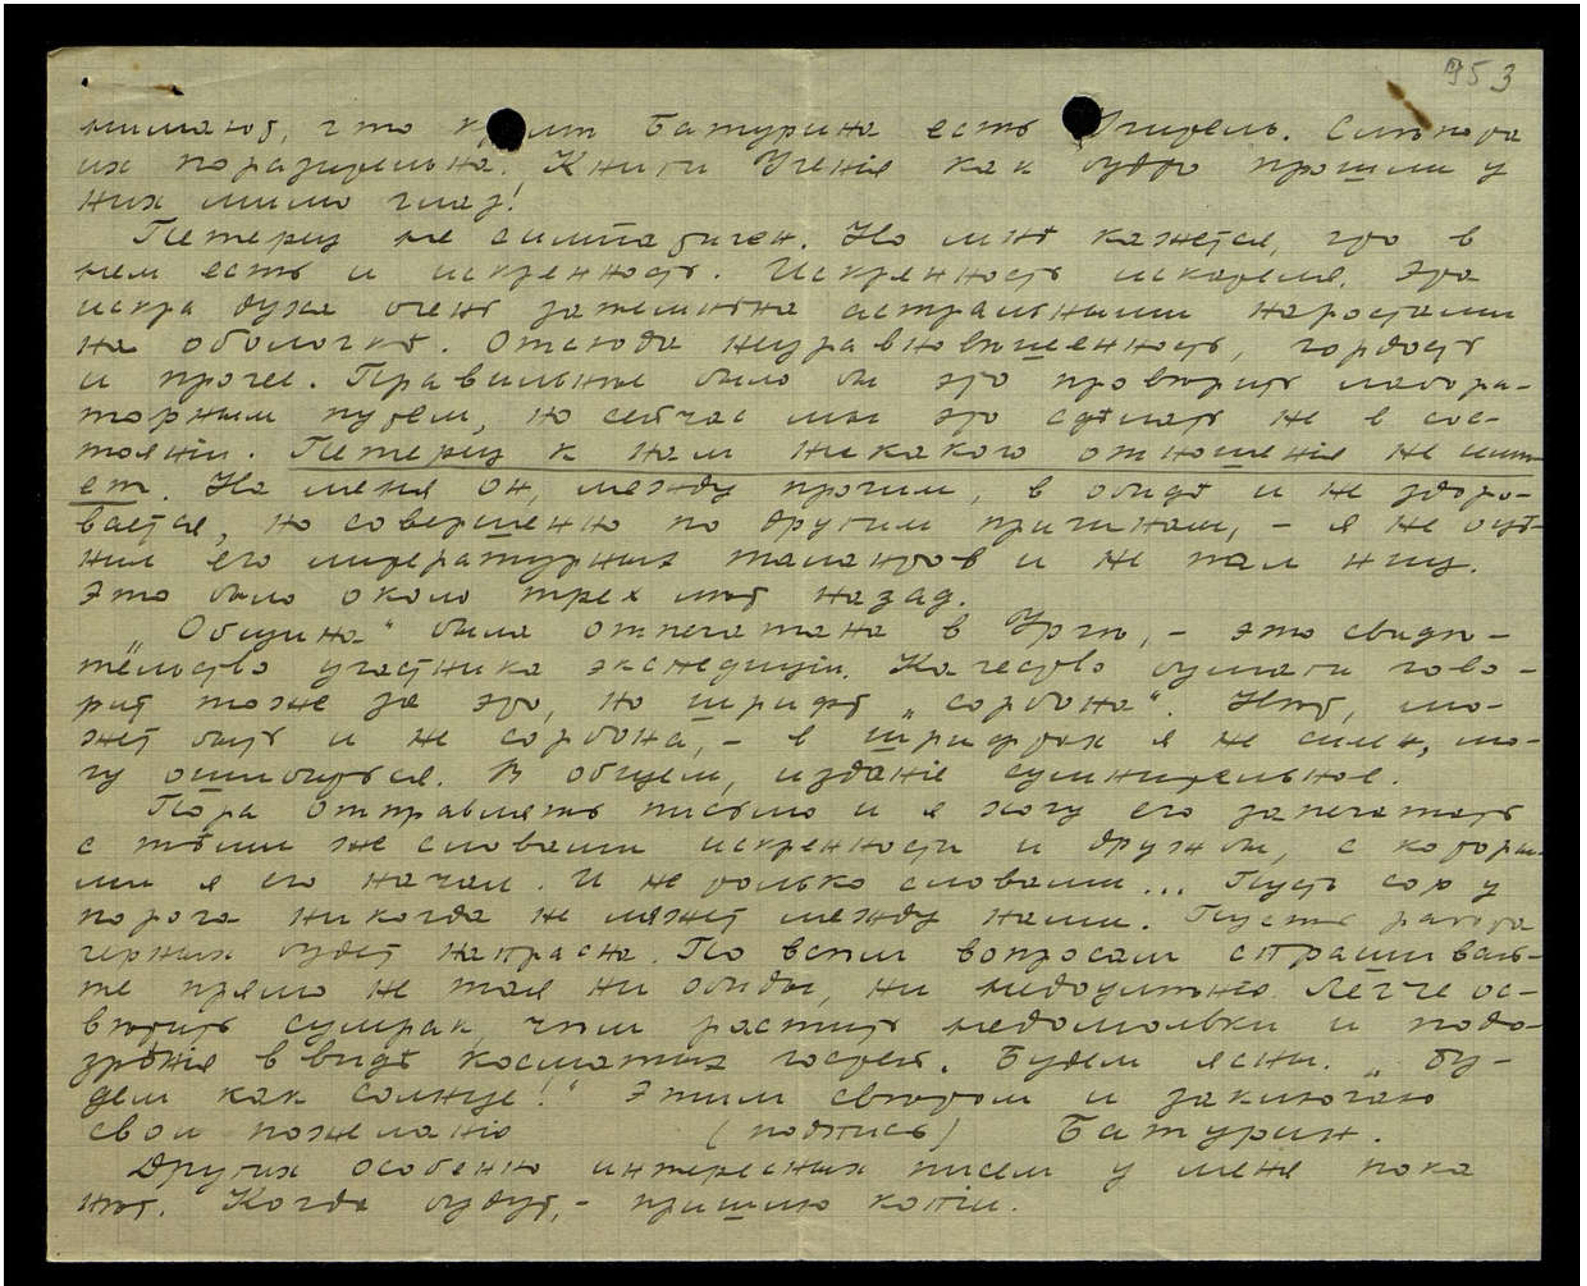 953
нимают, что к ит Батурина есть Учитель. Слепота
их поразительна. Книги Ученія как будто прошли у
них мимо глаз!
Петерец не симпатичен. Но мнѣ кажется, что в
нем есть и искренность. Искренность искателя. Эта
искра духа очень затемнѣна астральными наростами
на оболочкѣ. Отсюда неуравновѣшенность, гордость
и прочее. Правильнѣе было бы это провѣрить лабора-
торным путем, но сейчас мы это сдѣлать не в сос-
тояніи. Петерец к нам никакого отношенія не имѣ-
ет. На меня он, между прочим, в обидѣ и не здоро-
вается, но совершенно по другим причинам, – я не оцѣ-
нил его литературных талантов и не пал ниц.
Это было около трех лѣт назад.
„Община“ была отпечатана в Ургѣ, – это свидѣ-
тельство участника экспедиціи. Качество бумаги гово-
рит тоже за это, но шрифт „сорбона“. Нѣт, мо-
жет быть и не сорбона, – в шрифтах я не силен, мо-
гу ошибиться. В общем, изданіе сумнительное.
Пора отправлять письмо и я хочу его запечатать
с тѣми же словами искренности и дружбы, с которы-
ми я его начал. И не только словами... Пусть сор у
порога никогда не ляжет между нами. Пусть работа
черных будет напрасна. По всѣм вопросам спрашивай-
те прямо не тая ни обиды, ни недоумѣнія. Легче ос-
вѣтить сумрак, чѣм растить недомолвки и подо-
зрѣнія в видѣ косматых гостей. Будем ясны. „Бу-
дем как солнце!“ Этим свѣтом и заключаю
свои пожеланія (подпись) Батурин.
Других особенно интересных писем у меня пока
нѣт. Когда будут, – пришлю копіи.